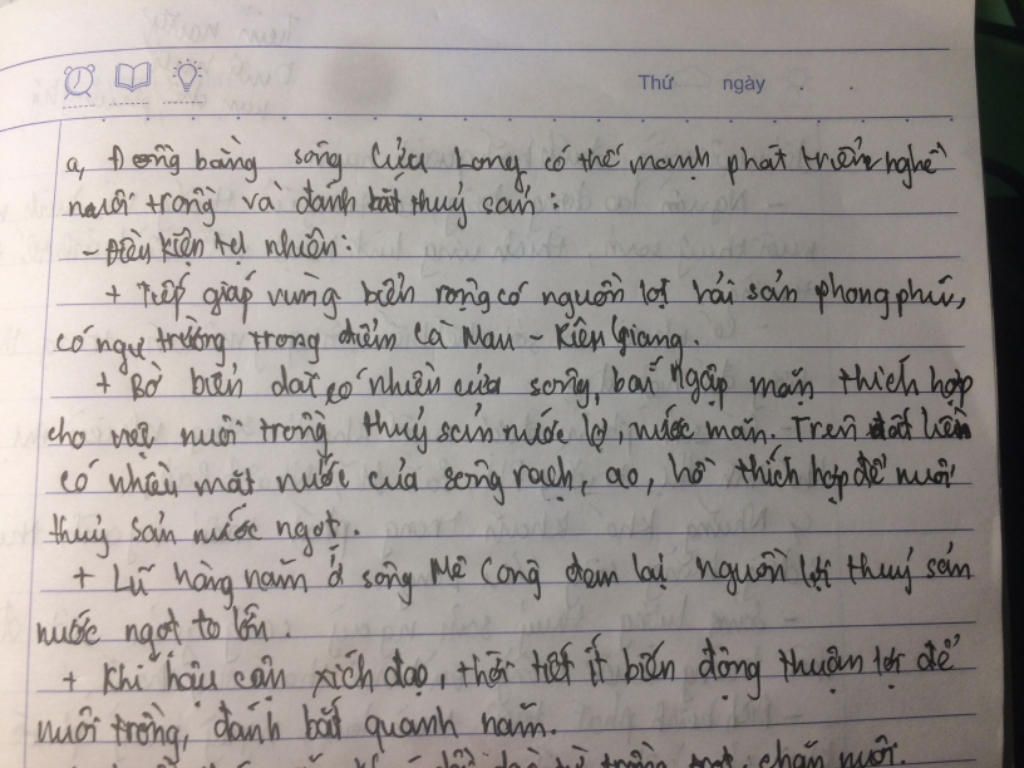 Thứ ngày
a, Đồng bằng sông Cửu Long có thế mạnh phát triển nghề
nuôi trồng và đánh bắt thuỷ sản:
- Điều kiện tự nhiên:
+ Tiếp giáp vùng biển rộng có nguồn lợi hải sản phong phú,
có ngư trường trọng điểm Cà Mau - Kiên Giang.
+ Bờ biển dài có nhiều cửa sông, bãi ngập mặn thích hợp
cho việc nuôi trồng thuỷ sản nước lợ, nước mặn. Trên đất liền
có nhiều mặt nước của sông rạch, ao, hồ thích hợp để nuôi
thuỷ sản nước ngọt.
+ Lũ hàng năm ở sông Mê Công đem lại nguồn lợi thuỷ sản
nước ngọt to lớn.
+ Khí hậu cận xích đạo, thời tiết ít biến động thuận lợi để
nuôi trồng, đánh bắt quanh năm.
từ trồng trọt, chăn nuôi.